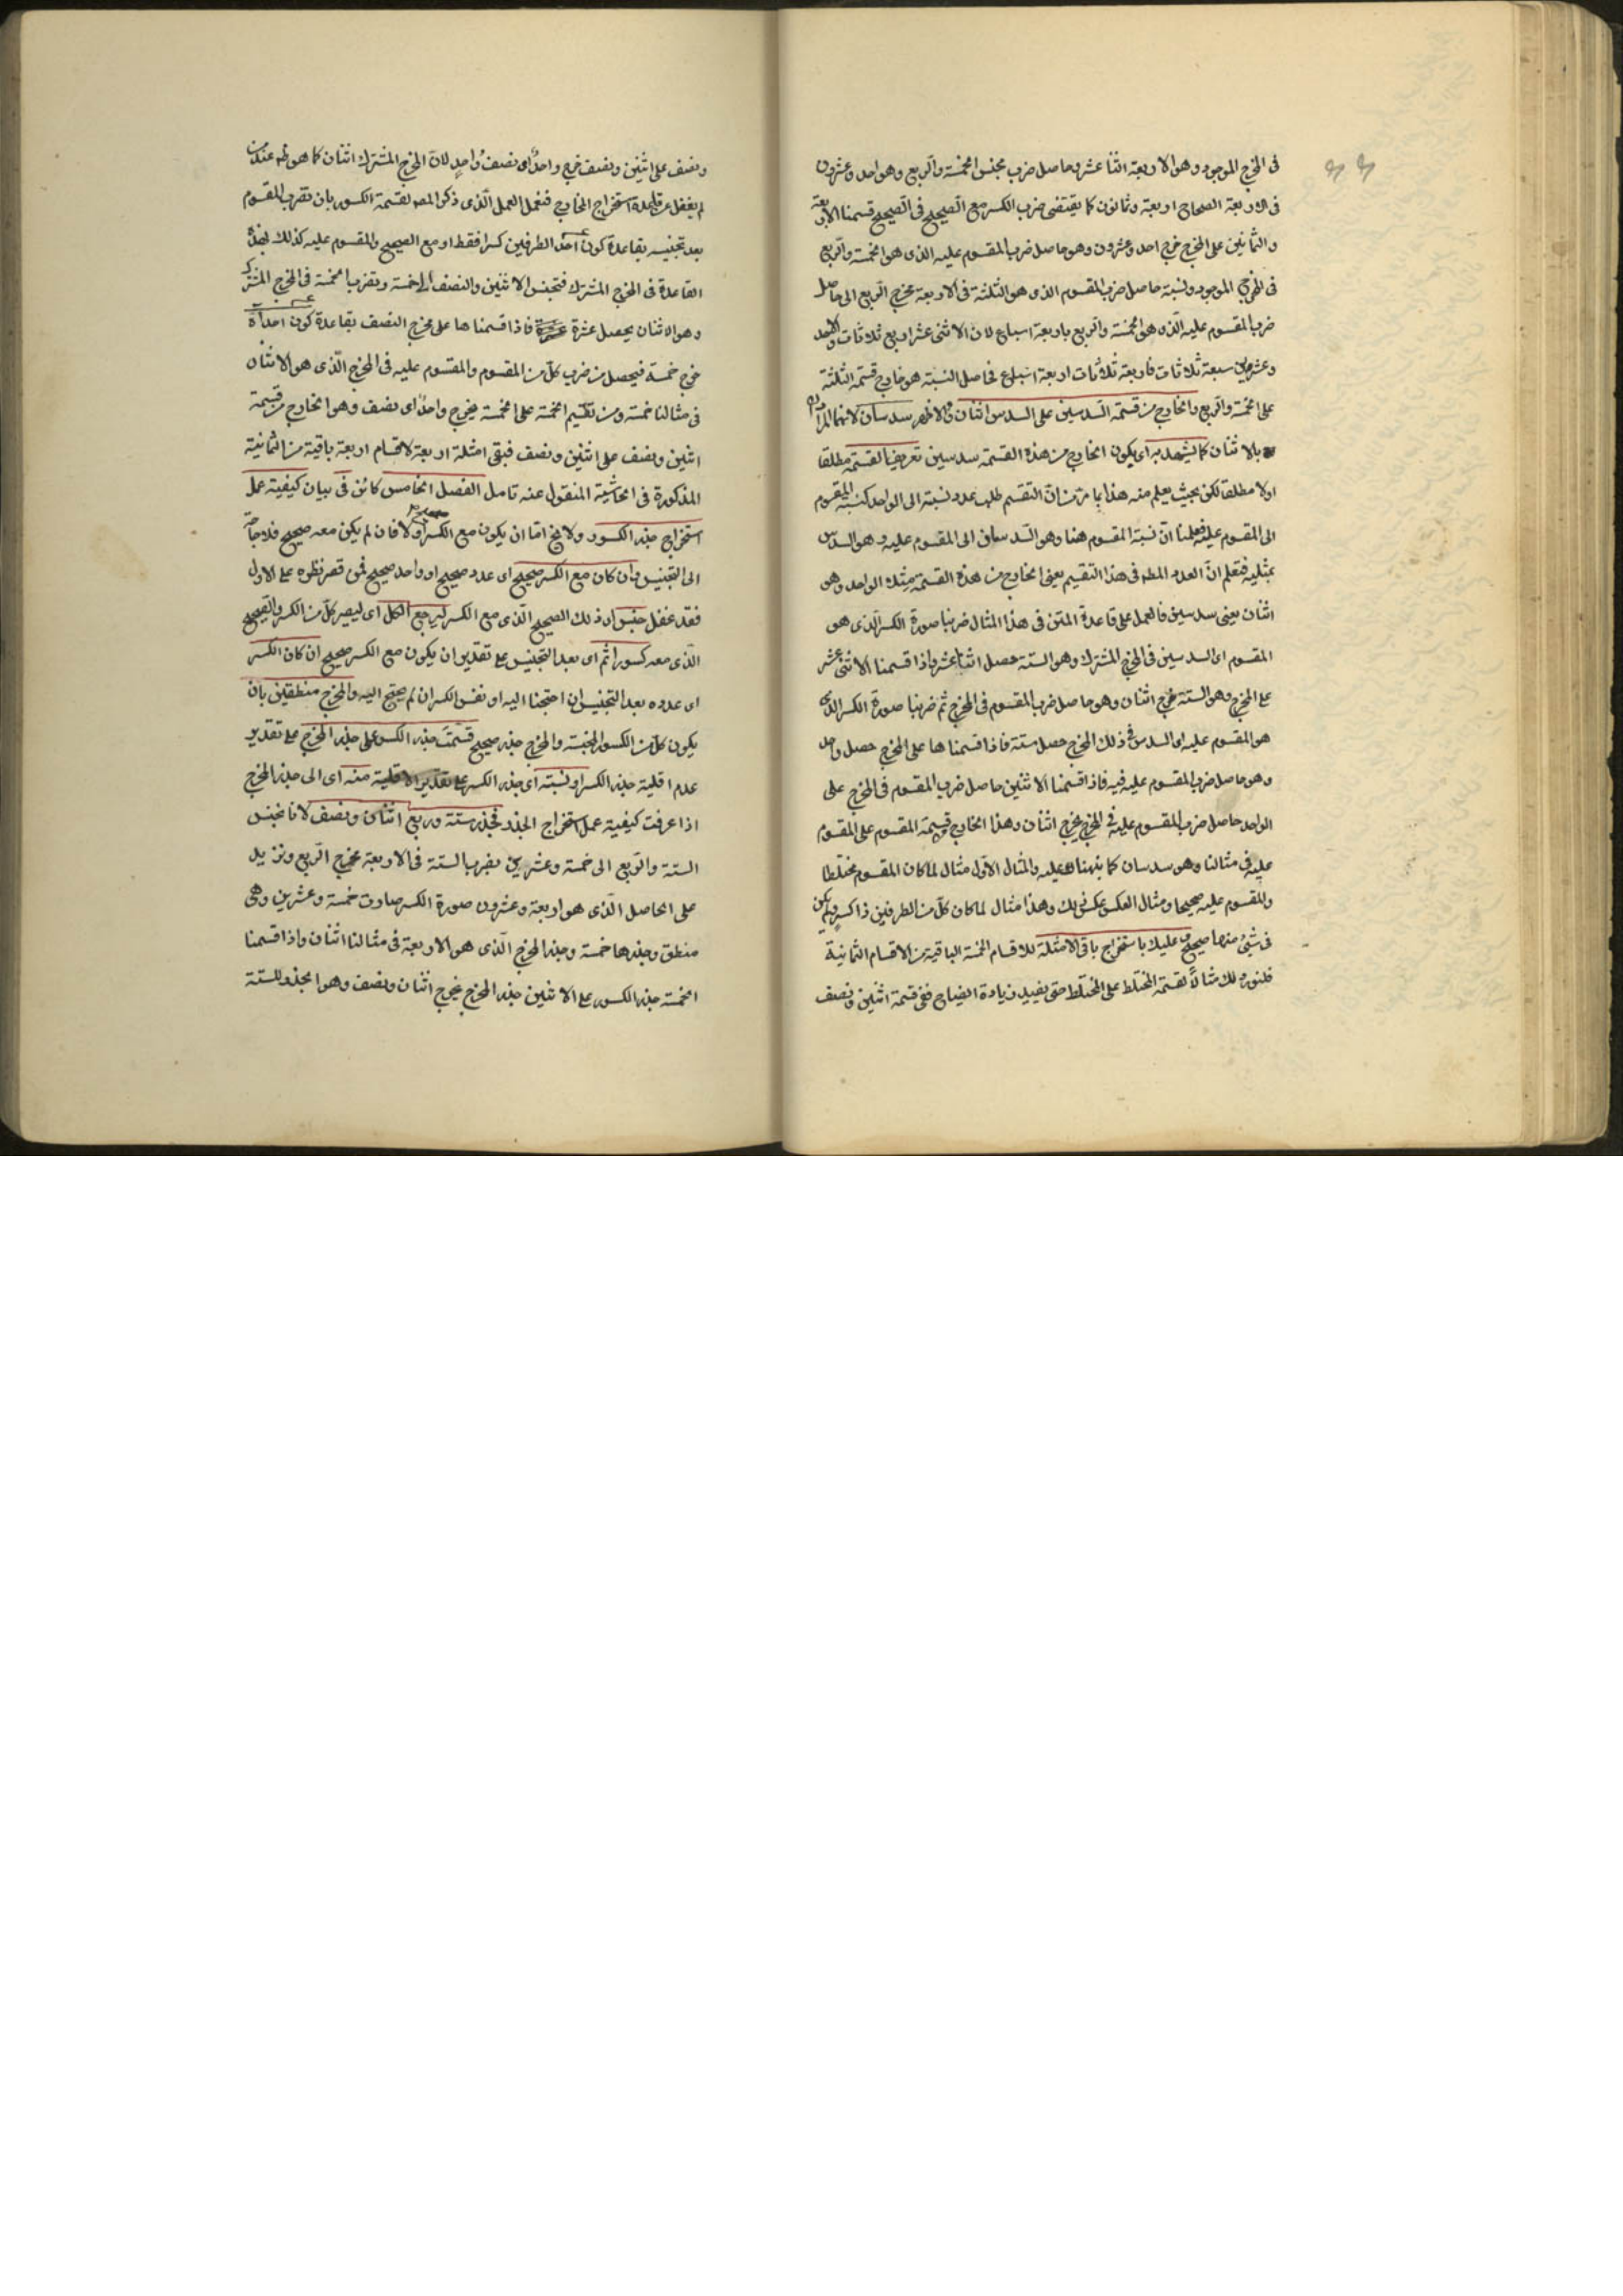 في المخرج الموجود وهو الاربعة اثنا عشر وحاصل ضرب مجنس الخمسة والربع وهو احد وعشرون
في الاربعة الصحاح اربعة وثمانون كما يقتضى ضرب الكسر مع الصحيح في الصحيح قسمنا الاربعة
والثمانين على المخرج خرج احد وعشرون وهو حاصل ضرب المقسوم عليه الذى هو الخمسة والربع
في المخرج الموجود ونسبة حاصل ضرب المقسوم الذى هو الثلثة في الاربعة مخرج الربع الى حاصل
ضرب المقسوم عليه الذى هو الخمسة والربع باربعة اسباع لان الاثنى عشر اربع ثلاثات والاحد
وعشرين سبعة ثلاثات فاربعة ثلاثات اربعة اسباع فحاصل النسبة هو خارج قسمة الثلثة
على الخمسة والربع والخارج من قسمة السدسين على السدس اثنان ولا سدسان لانهما
بالاثنان كما يشهد به اى يكون الخارج من هذه القسمة سدسين تعريف القسمة مطلقا
اولا مطلقا لكن بحيث يعلم منه هذا بما مر من ان التقسيم طلب عدد نسبته الى الواحد كنسبة المقسوم
الى المقسوم عليه فعلمنا ان نسبة المقسوم هنا وهو السدسان الى المقسوم عليه وهو السدس
بمثليه فتعلم ان العدد المطـ في هذا التقسيم يعنى الخارج من هذه القسمة مثلا الواحد وهو
اثنان يعنى سدسين فالعمل على قاعدة المتن في هذا المثال ضربنا صورة الكسر الذى هو
المقسوم اى السدسين في المخرج المشترك وهو الستة حصل اثنا عشر واذا قسمنا الاثنى عشر
على المخرج وهو الستة خرج اثنان وهو حاصل ضرب المقسوم في المخرج ثم ضربنا صورة الكسر الذى
هو المقسوم عليه اى السدس في ذلك المخرج حصل ستة فاذا قسمنا ها على المخرج حصل واحد
وهو حاصل ضرب المقسوم عليه فيه فاذا قسمنا الاثنين حاصل ضرب المقسوم في المخرج على
الواحد حاصل ضرب المقسوم عليه في المخرج يخرج اثنان وهذا الخارج قسمة المقسوم على المقسوم
عليه في مثالنا وهو سدسان كما نبهناك عليه والمثال الاول مثال لما كان المقسوم مختلطا
والمقسوم عليه صحيحا ومثال العكس عكس ذلك وهذا مثال لما كان كل من الطرفين ذا كسر ولم يكن
في شئ منهما صحيح وعليك باستخراج باقى الامثلة للاقسام الخمسة الباقية من الاقسام الثمانية
فلنورد لك مثالا لقسمة المختلط على المختلط حتى يفيد زيادة ايضاح ففي قسمة اثنين ونصف
ونصف على اثنين ونصف خرج واحد اى نصف واحد لان المخرج المشترك اثنان كما هو ظـ عند من
لم يغفل عن قاعدة استخراج المخارج فنعمل العمل الذى ذكر المصـ لقسمة الكسور بان نضرب المقسوم
بعد تجنيسه بقاعدة كون احد الطرفين كسرا فقط او مع الصحيح والمقسوم عليه كذلك بهذه
القاعدة في المخرج المشترك فتجنس الاثنين والنصف الى خمسة وتضرب الخمسة في المخرج المشترك
وهو الاثنان يحصل عشرة فاذا قسمنا ها على مخرج النصف بقاعدة كون احداه
خرج خمسة فيحصل من ضرب كل من المقسوم والمقسوم عليه في المخرج الذى هو الاثنان
في مثالنا خمسة ومن تقسيم الخمسة على الخمسة يخرج واحد اى نصف وهو الخارج من قسمة
اثنين ونصف على اثنين ونصف فبقى امثلة اربعة لاقسام اربعة باقية من الثمانية
المذكورة في الحاشية المنقول عنه تامل الفصل الخامس كائن في بيان كيفية عمل
استخراج جذر الكسور ولا يخ اما ان يكون مع الكسر صحيح اولا فان لم يكن معه صحيح فلا حاجة
الى التجنيس وان كان مع الكسر صحيح اى عدد صحيح او واحد صحيح فمن قصر نظره على الاول
فقد غفل جنس اى ذلك الصحيح الذى مع الكسر ليرجع الكل اى ليصير كل من الكسر والصحيح
الذى معه كسورا ثم اى بعد التجنيس على تقدير ان يكون مع الكسر صحيح ان كان الكسر
اى عدده بعد التجنيس ان احتجنا اليه او نفس الكسر ان لم يحتج اليه والمخرج منطقين بان
يكون كل من الكسور المجنسة والمخرج جذر صحيح قسمت جذر الكسر على جذر المخرج على تقدير
عدم اقلية جذر الكسر او نسبته اى جذر الكسر على تقدير الاقلية منه اى الى جذر المخرج
اذا عرفت كيفية عمل استخراج الجذر فجذر ستة وربع اثنان ونصف لانا نجنس
الستة والربع الى خمسة وعشرين بضرب الستة في الاربعة مخرج الربع ونزيد
على الحاصل الذى هو اربعة وعشرون صورة الكسر صارت خمسة وعشرين وهى
منطق وجذرها خمسة وجذر المخرج الذى هو الاربعة في مثالنا اثنان واذا قسمنا
الخمسة جذر الكسور على الاثنين جذر المخرج يخرج اثنان ونصف وهو الجذر للستة